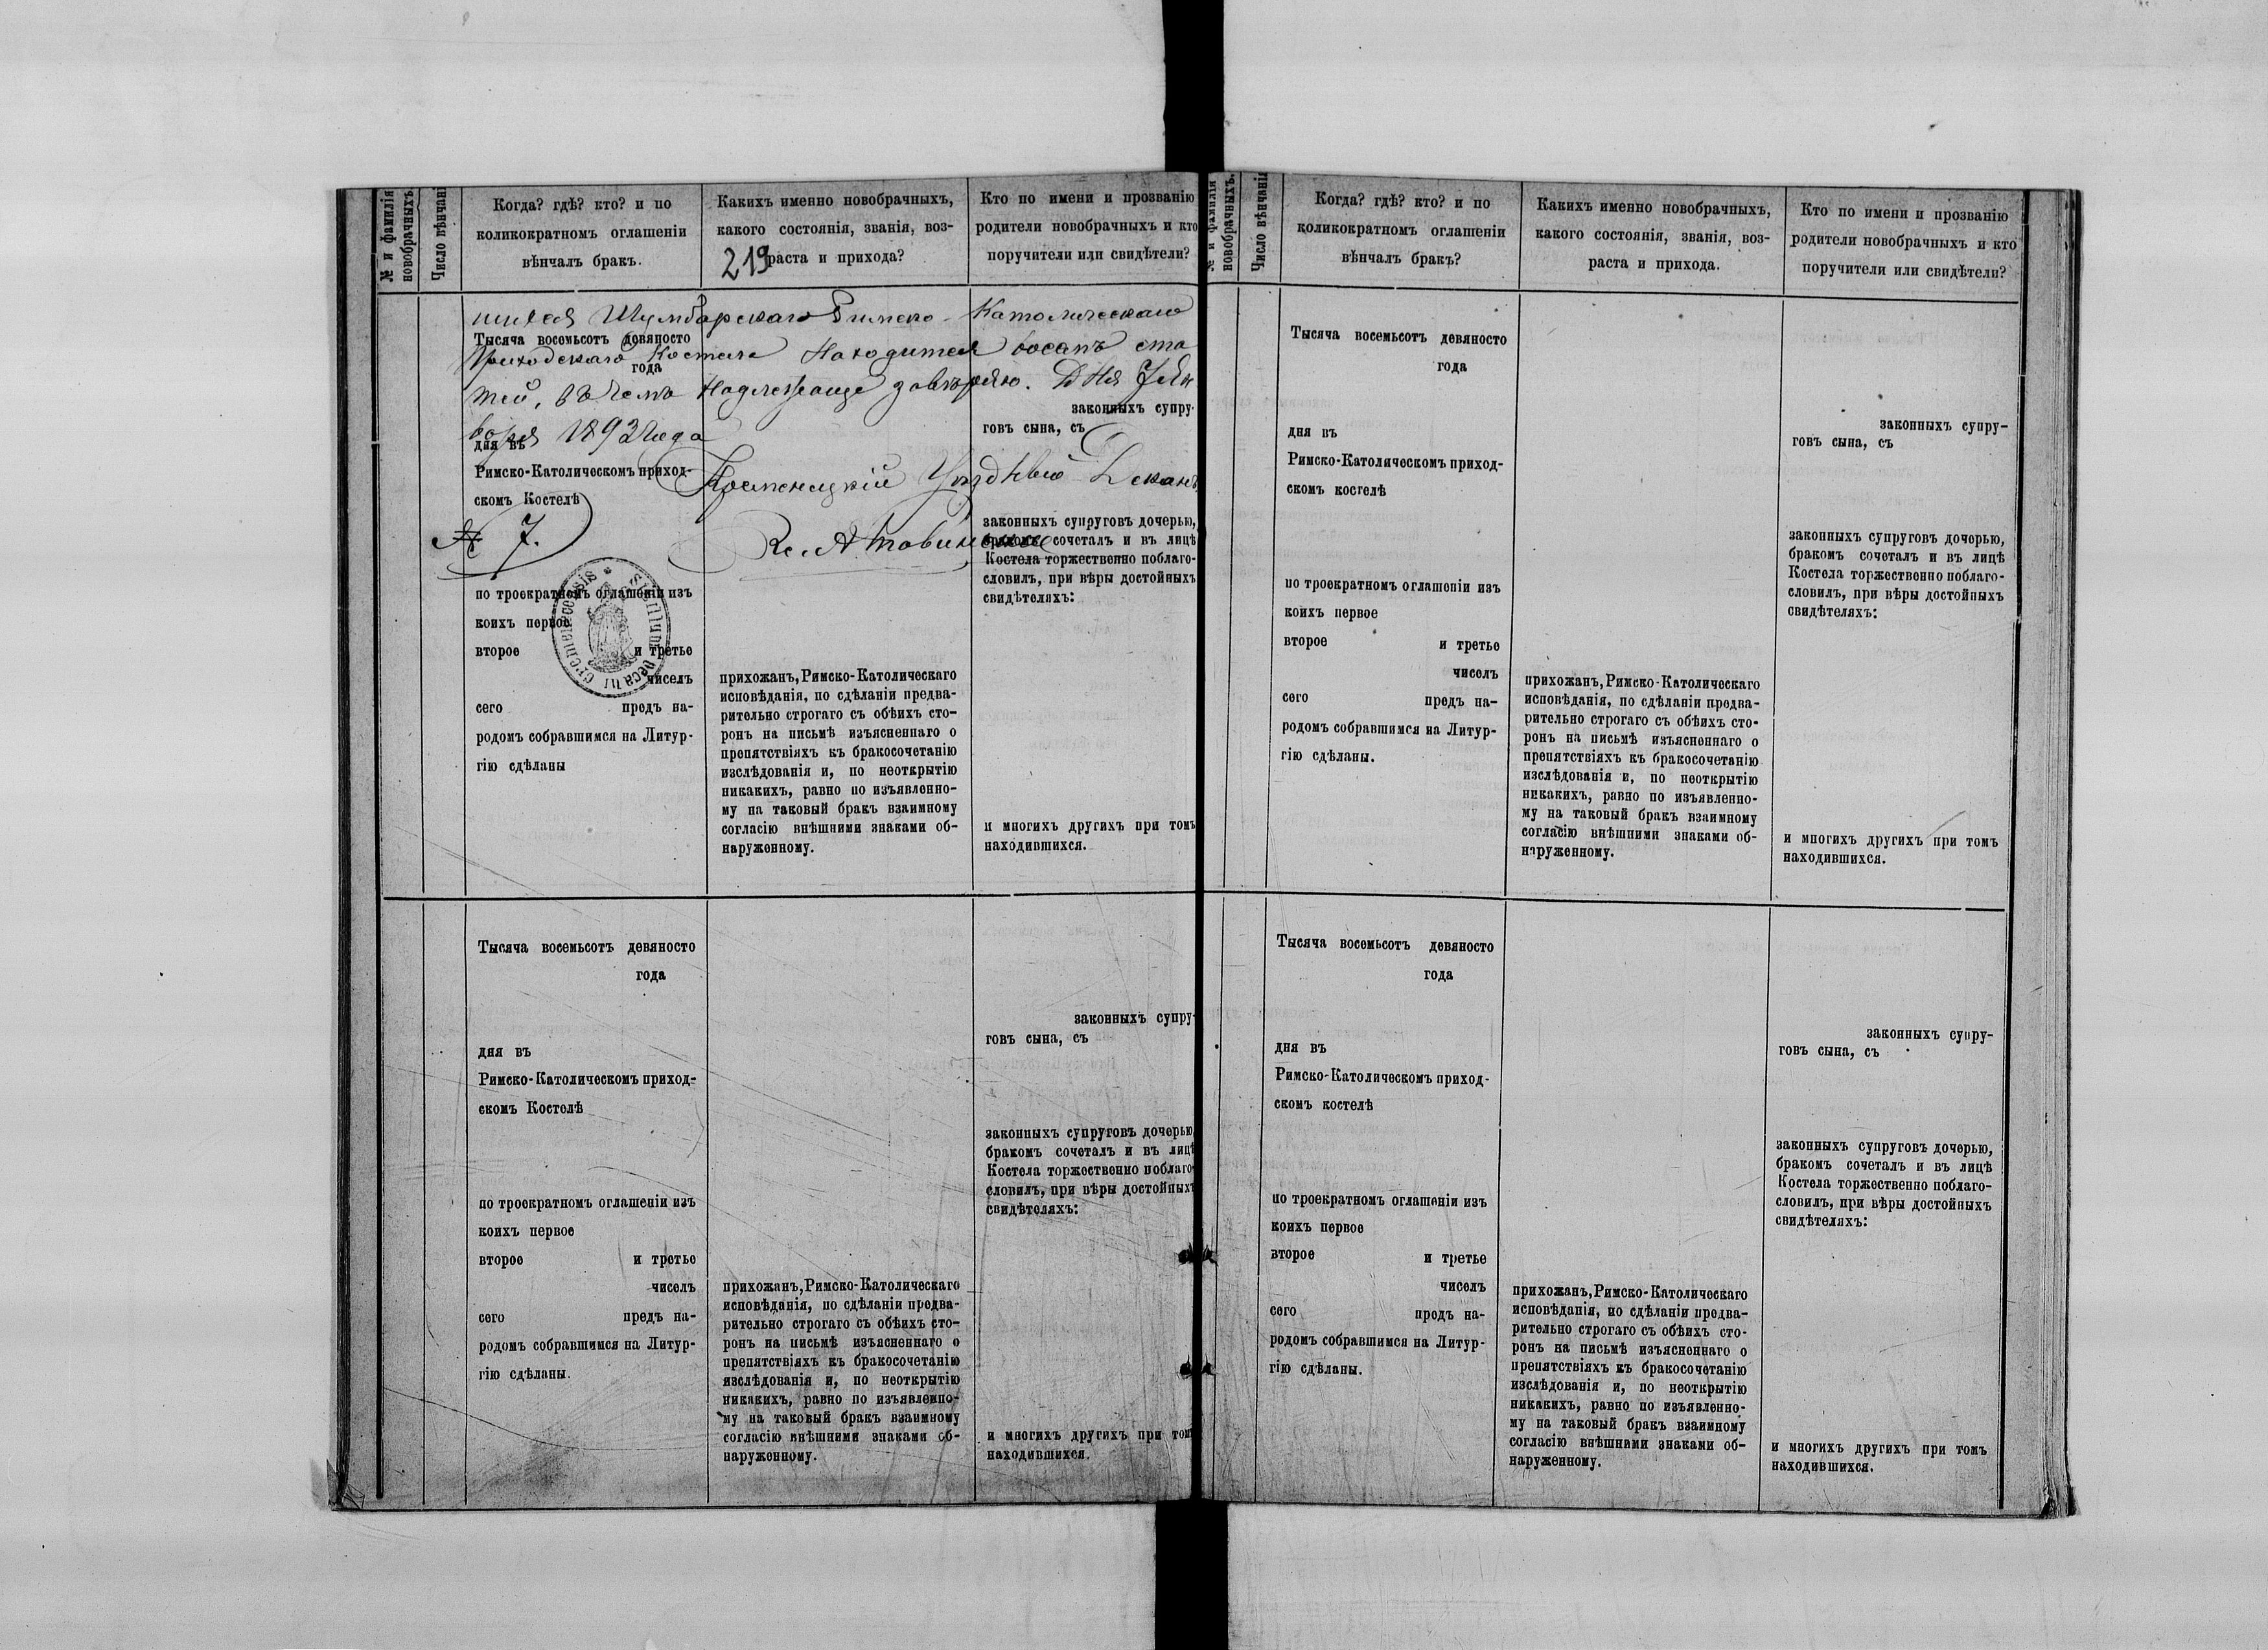 № и фамилія
новобрачныхъ.
Число вѣнчанія
Когда? гдѣ? кто? и по
коликократномъ оглашеніи
вѣнчалъ бракъ.
Какихъ именно новобрачныхъ,
какого состоянія, званія, воз-
раста и прихода?
219
Кто по имени и прозванію
родители новобрачныхъ и кто
поручители или свидѣтели?
Шумбарскаго Римско-Католическаго
Приходскаго Костела находится восемь ста
тей, въ чемъ надлежаще завѣряю. Дня 7 Ян
варя 1893 года
Кременецкій Уѣздный Деканъ
№ 7.
Sigillum Decani Cremenecensis
Тысяча восемьсотъ девяносто
года
дня въ
Римско-Католическомъ приход-
скомъ Костелѣ
по троекратномъ оглашеніи изъ
коихъ первое
второе и третье
чиселъ
сего предъ на-
родомъ собравшимся на Литур-
гію сдѣланы
прихожанъ, Римско-Католическаго
исповѣданія, по сдѣланіи предва-
рительно строгаго съ обѣихъ сто-
ронъ на письмѣ изъясненнаго о
препятствіяхъ къ бракосочетанію
изслѣдованія и, по неоткрытію
никакихъ, равно по изъявленно-
му на таковый бракъ взаимному
согласію внѣшними знаками об-
наруженному.
законныхъ супру-
говъ сына, съ
законныхъ супруговъ дочерью,
бракомъ сочеталъ и въ лицѣ
Костела торжественно поблаго-
словилъ, при вѣры достойныхъ
свидѣтеляхъ:
и многихъ другихъ при томъ
находившихся.
Тысяча восемьсотъ девяносто
года
дня въ
Римско-Католическомъ приход-
скомъ Костелѣ
по троекратномъ оглашеніи изъ
коихъ первое
второе и третье
чиселъ
сего предъ на-
родомъ собравшимся на Литур-
гію сдѣланы.
прихожанъ, Римско-Католическаго
исповѣданія, по сдѣланіи предва-
рительно строгаго съ обѣихъ сто-
ронъ на письмѣ изъясненнаго о
препятствіяхъ къ бракосочетанію
изслѣдованія и, по неоткрытію
никакихъ, равно по изъявленно-
му на таковый бракъ взаимному
согласію внѣшними знаками об-
наруженному.
законныхъ супру-
говъ сына, съ
законныхъ супруговъ дочерью,
бракомъ сочеталъ и въ лицѣ
Костела торжественно поблаго-
словилъ, при вѣры достойныхъ
свидѣтеляхъ:
и многихъ другихъ при томъ
находившихся.
№ и фамилія
новобрачныхъ.
Число вѣнчанія
Когда? гдѣ? кто? и по
коликократномъ оглашеніи
вѣнчалъ бракъ?
Какихъ именно новобрачныхъ,
какого состоянія, званія, воз-
раста и прихода.
Кто по имени и прозванію
родители новобрачныхъ и кто
поручители или свидѣтели?
Тысяча восемьсотъ девяносто
года
дня въ
Римско-Католическомъ приход-
скомъ костелѣ
по троекратномъ оглашеніи изъ
коихъ первое
второе и третье
чиселъ
сего предъ на-
родомъ собравшимся на Литур-
гію сдѣланы.
прихожанъ, Римско-Католическаго
исповѣданія, по сдѣланіи предва-
рительно строгаго съ обѣихъ сто-
ронъ на письмѣ изъясненнаго о
препятствіяхъ къ бракосочетанію
изслѣдованія и, по неоткрытію
никакихъ, равно по изъявленно-
му на таковый бракъ взаимному
согласію внѣшними знаками об-
наруженному.
законныхъ супру-
говъ сына, съ
законныхъ супруговъ дочерью,
бракомъ сочеталъ и въ лицѣ
Костела торжественно поблаго-
словилъ, при вѣры достойныхъ
свидѣтеляхъ:
и многихъ другихъ при томъ
находившихся.
Тысяча восемьсотъ девяносто
года
дня въ
Римско-Католическомъ приход-
скомъ костелѣ
по троекратномъ оглашеніи изъ
коихъ первое
второе и третье
чиселъ
сего предъ на-
родомъ собравшимся на Литур-
гію сдѣланы.
прихожанъ, Римско-Католическаго
исповѣданія, по сдѣланіи предва-
рительно строгаго съ обѣихъ сто-
ронъ на письмѣ изъясненнаго о
препятствіяхъ къ бракосочетанію
изслѣдованія и, по неоткрытію
никакихъ, равно по изъявленно-
му на таковый бракъ взаимному
согласію внѣшними знаками об-
наруженному.
законныхъ супру-
говъ сына, съ
законныхъ супруговъ дочерью,
бракомъ сочеталъ и въ лицѣ
Костела торжественно поблаго-
словилъ, при вѣры достойныхъ
свидѣтеляхъ:
и многихъ другихъ при томъ
находившихся.